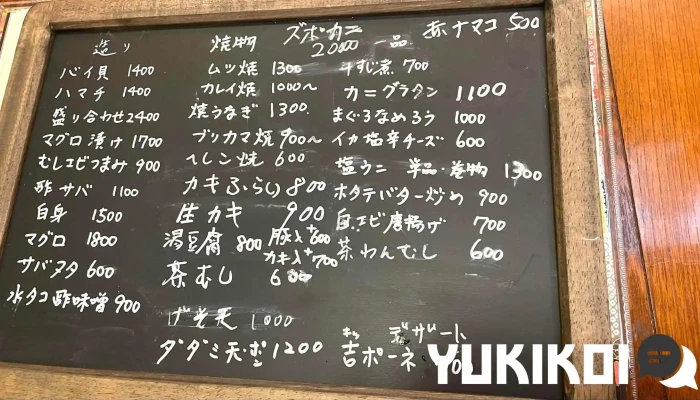 造り
バイ貝 1400
ハマチ 1400
盛り合わせ 2400
マグロ漬け 1700
むしエビつまみ 900
酢サバ 1100
白身 1500
マグロ 1800
サバヌタ 600
水タコ酢味噌 900
焼物
ムツ焼 1300
カレイ焼 1000〜
焼うなぎ 1300
ブリカマ焼 900〜
へしこ焼 600
カキふらい 800
生カキ 900
湯豆腐 800 豚入+600
カキ入+700
茶むし 600
げそ天 1000
ダダミ天・ポン 1200
ズボガニ
2000
一品
赤ナマコ 500
牛すじ煮 700
カニグラタン 1100
まぐろなめろう 1000
イカ塩辛チーズ 600
塩ウニ 単品・巻物 1300
ホタテバター炒め 900
白エビ唐揚げ 700
茶わんむし 600
デザート
吉ポーネ
YUKIKOI